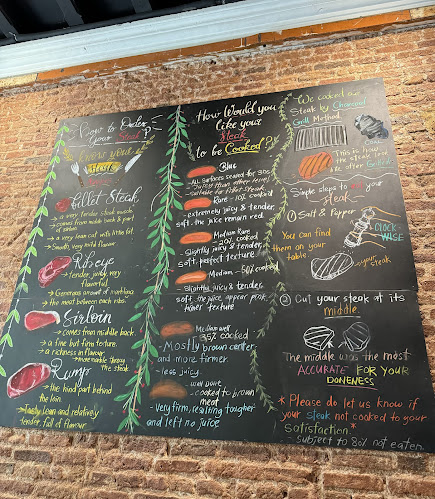 How to Order
Your Steak?
Know your
Fillet Steak
→ a very tender steak muscle
→ comes from middle back & part
of sirloin
→ a very lean cut with little fat.
→ Smooth, very mild flavour
Ribeye
→ Tender, juicy, very
flavourful.
→ Generous amount of marbling
→ the meat between each ribs.
Sirloin
→ comes from middle back.
→ a fine but firm texture.
→ a richness in flavour
→ more marble through
the steak
Rump
→ the hind part behind
the loin.
→ Mostly lean and relatively
tender full of flavour
How Would you
like your
Steak
to be Cooked?
Blue
- ALL surfaces seared for 30s
- suitable for fillet steak.
Rare - 10% cooked
- extremely juicy & tender,
soft. the juice remain red.
Medium Rare
- 20% cooked
Slightly juicy & tender,
soft, perfect texture
Medium - 50% cooked
Slightly juicy & tender,
soft, the juice appear pink
firmer texture
Medium well
75% cooked
- Mostly brown center
and more firmer
- less juicy.
well Done
- cooked to brown
meat
- Very firm, resulting tougher
and left no juice
We cooked our
Steak by Charcoal
Grill Method.
This is how
the steak look
like after Grilled
Simple steps to your
steak
① Salt & Pepper
CLOCK-
WISE
You can find
them on your
table
your steak
② Cut your steak at its
middle.
The middle was the most
ACCURATE FOR YOUR
DONENESS
* Please do let us know if
your steak not cooked to your
Satisfaction *
- subject to 80% not eaten.